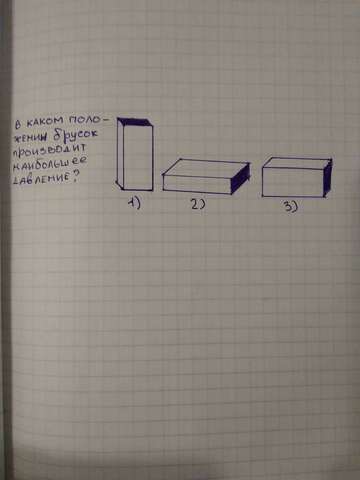 В КАКОМ ПОЛО-
ЖЕНИИ БРУСОК
ПРОИЗВОДИТ
НАИБОЛЬШЕЕ
ДАВЛЕНИЕ?
1) 2) 3)